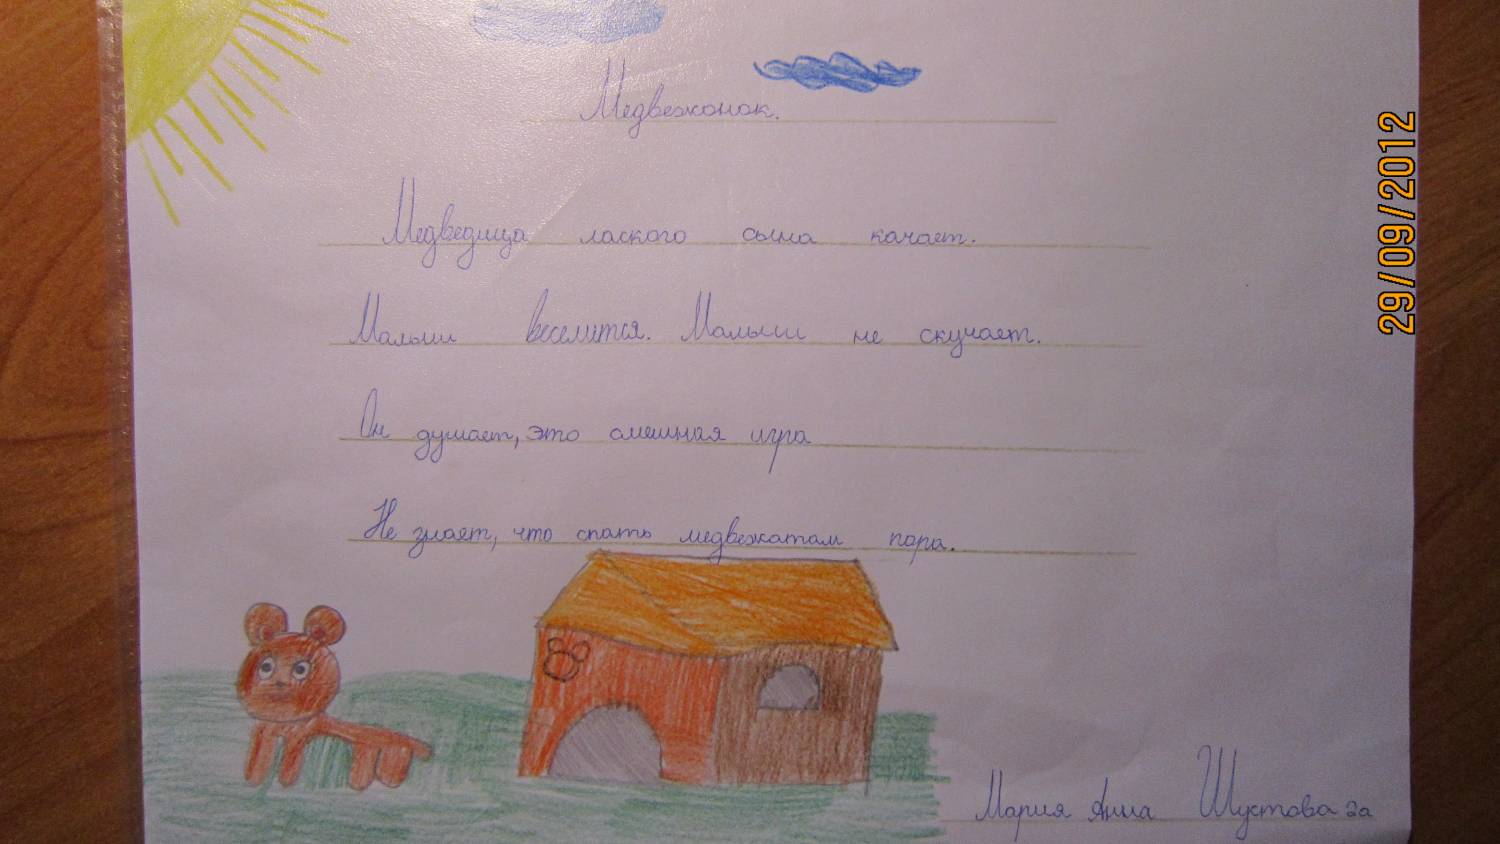 Медвежонок.
Медведица лаского сына качает.
Малыш веселится. Малыш не скучает.
Он думает, это смешная игра
Не знает, что спать медвежатам пора.
Мария Анна Шустова 2а
29/09/2012